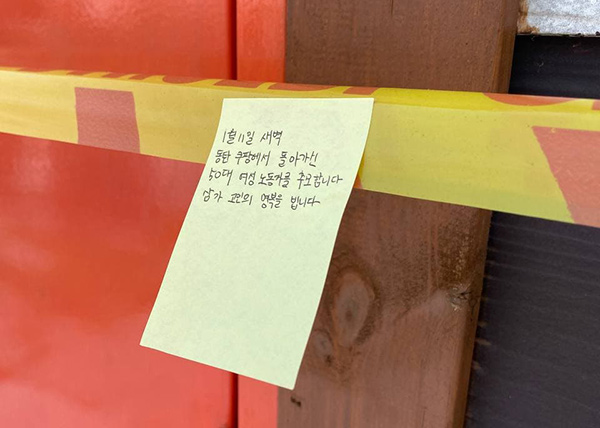 1월 11일 새벽
동탄 쿠팡에서 돌아가신
50대 여성 노동자를 추모합니다
삼가 고인의 명복을 빕니다